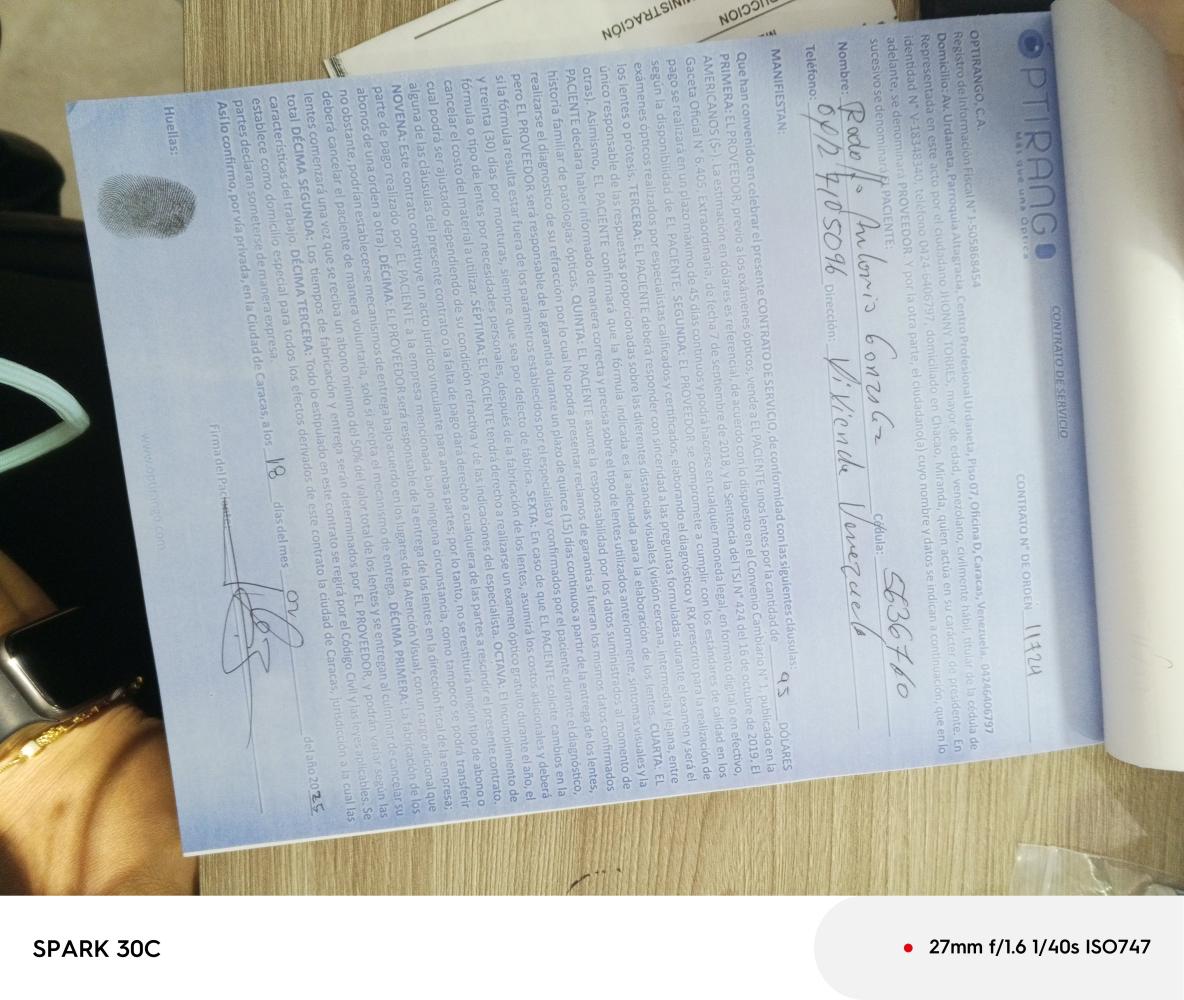 OPTIRANGO
Más que una Óptica
CONTRATO DE SERVICIO
CONTRATO N° DE ORDEN 11724
OPTIRANGO, C.A.
Registro de Información Fiscal N° J-505868454
Domicilio: Av. Urdaneta, Parroquia Altagracia, Centro Profesional Urdaneta, Piso 07, Oficina D, Caracas, Venezuela, 04246406797
Representada en este acto por el ciudadano JHONNY TORRES, mayor de edad, venezolano, civilmente hábil, titular de la cédula de
identidad N° V-18343840, teléfono 0424-6406797, domiciliado en Chacao, Miranda, quien actúa en su carácter de presidente. En
adelante, se denominará PROVEEDOR. Y por la otra parte, el ciudadano(a) cuyo nombre y datos se indican a continuación, que en lo
sucesivo se denominará EL PACIENTE:
Nombre: Rodolfo Antonio Gonzalez Cédula: 5636760
Teléfono: 04127405096 Dirección: Vivienda Venezuela
MANIFIESTAN:
Que han convenido en celebrar el presente CONTRATO DE SERVICIO, de conformidad con las siguientes cláusulas:
PRIMERA: EL PROVEEDOR, previo a los exámenes ópticos, vende a EL PACIENTE unos lentes por la cantidad de 95 DÓLARES
AMERICANOS ($). La estimación en dólares es referencial, de acuerdo con lo dispuesto en el Convenio Cambiario N° 1, publicado en la
Gaceta Oficial N° 6.405 Extraordinaria, de fecha 7 de septiembre de 2018, y la Sentencia del TSJ N° 424 del 16 de octubre de 2019. El
pago se realizará en un plazo máximo de 45 días continuos y podrá hacerse en cualquier moneda legal, en formato digital o en efectivo,
según la disponibilidad de EL PACIENTE. SEGUNDA: EL PROVEEDOR se compromete a cumplir con los estándares de calidad en los
exámenes ópticos realizados por especialistas calificados y certificados, elaborando el diagnóstico y RX prescrito para la realización de
los lentes o prótesis. TERCERA: EL PACIENTE deberá responder con sinceridad a las preguntas formuladas durante el examen y será el
único responsable de las respuestas proporcionadas sobre las diferentes distancias visuales (visión cercana, intermedia y lejana, entre
otras). Asimismo, EL PACIENTE confirmará que la fórmula indicada es la adecuada para la elaboración de los lentes. CUARTA: EL
PACIENTE declara haber informado de manera correcta y precisa sobre el tipo de lentes utilizados anteriormente, síntomas visuales y la
historia familiar de patologías ópticos. QUINTA: EL PACIENTE asume la responsabilidad por los datos suministrados al momento de
realizarse el diagnóstico de su refracción por lo cual No podrá presentar reclamos de garantía si fueran los mismos datos confirmados
pero EL PROVEEDOR será responsable de la garantía durante un plazo de quince (15) días continuos a partir de la entrega de los lentes,
si la fórmula resulta estar fuera de los parámetros establecidos por el especialista y confirmados por el paciente durante el diagnóstico,
y treinta (30) días por monturas, siempre que sea por defecto de fábrica. SEXTA: En caso de que EL PACIENTE solicite cambios en la
fórmula o tipo de lentes por necesidades personales, después de la fabricación de los lentes, asumirá los costos adicionales y deberá
cancelar el costo del material a utilizar. SÉPTIMA: EL PACIENTE tendrá derecho a realizarse un examen óptico gratuito durante el año, el
cual podrá ser ajustado dependiendo de su condición refractiva y de las indicaciones del especialista. OCTAVA: El incumplimiento de
alguna de las cláusulas del presente contrato o la falta de pago dará derecho a cualquiera de las partes a rescindir el presente contrato.
NOVENA: Este contrato constituye un acto jurídico vinculante para ambas partes; por lo tanto, no se restituirá ningún tipo de abono o
parte de pago realizado por EL PACIENTE a la empresa mencionada bajo ninguna circunstancia, como tampoco se podrá transferir
abonos de una orden a otra). DÉCIMA: EL PROVEEDOR será responsable de la entrega de los lentes en la dirección fiscal de la empresa;
no obstante, podrían establecerse mecanismos de entrega bajo acuerdo en los lugares de la Atención Visual, con un cargo adicional que
deberá cancelar el paciente de manera voluntaria, solo si acepta el mecanismo de entrega. DÉCIMA PRIMERA: La fabricación de los
lentes comenzará una vez que se reciba un abono mínimo del 50% del valor total de los lentes y se entregan al culminar de cancelar su
total. DÉCIMA SEGUNDA: Los tiempos de fabricación y entrega serán determinados por EL PROVEEDOR, y podrán variar según las
características del trabajo. DÉCIMA TERCERA: Todo lo estipulado en este contrato se regirá por el Código Civil y las leyes aplicables. Se
establece como domicilio especial para todos los efectos derivados de este contrato la ciudad de Caracas, jurisdicción a la cual las
partes declaran someterse de manera expresa.
Así lo confirmo, por vía privada, en la Ciudad de Caracas, a los 18 días del mes 04 del año 2025
Huellas:
Firma del
www.optirango.com
SPARK 30C
27mm f/1.6 1/40s ISO747